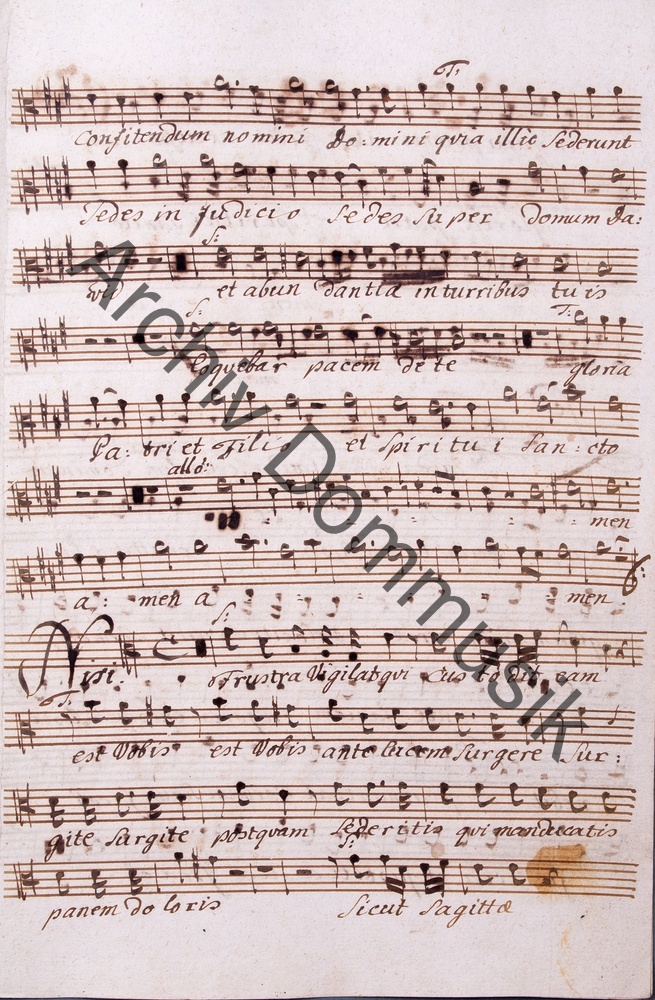 T:
Confitendum nomini Do: mini qvia illic Sederunt
Sedes in Judicio Sedes super domum Da:
S:
vid et abun dantia inturribus tuis
S: T:
Loquebar pacem de te gloria
Pa: tri et Filio et Spiritui San: cto
allo:
men
a: men a men.
S:
Nisi. Frustra Vigilat qvi Custodit eam
T:
est Vobis est Vobis ante lucem Surgere Sur:
gite Surgite postquam Sederitis qvi manducatis
S:
panem doloris Sicut Sagittæ
Archiv Dommusik